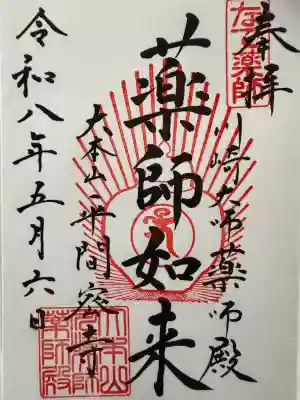 奉拝
なで薬師
川崎大師薬師殿
薬師如来
大本山平間寺
令和八年五月六日